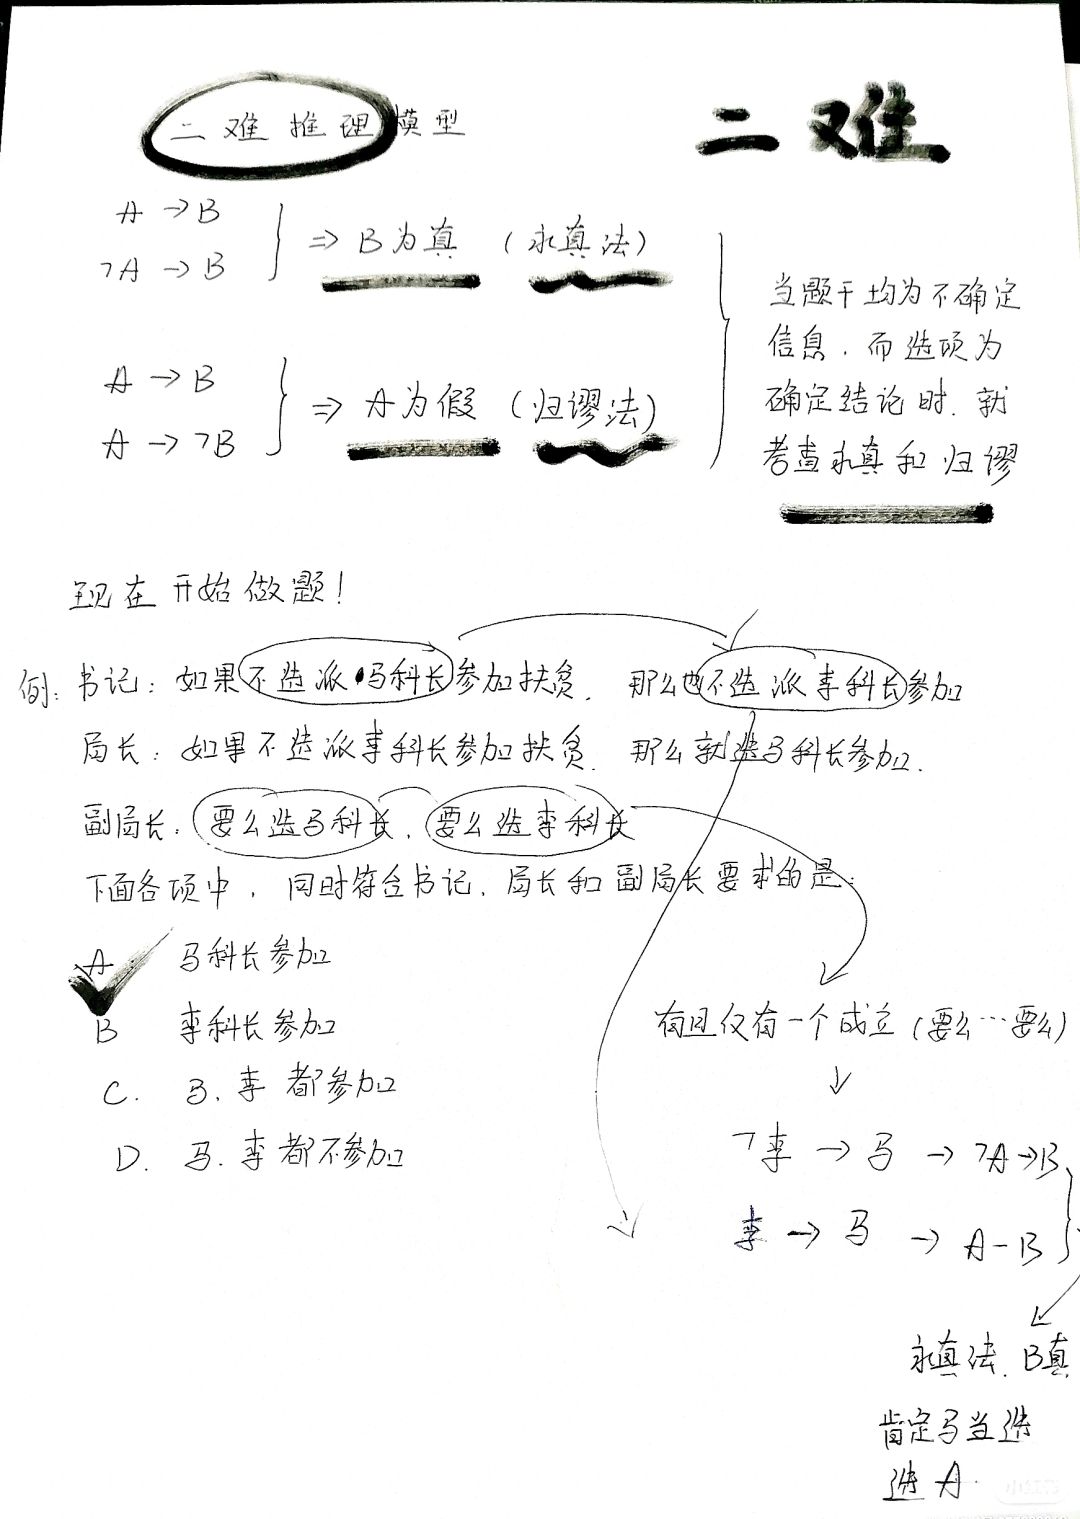 二难推理模型
二难
A→B
¬A→B
⇒ B为真 (永真法)
A→B
A→¬B
⇒ A为假 (归谬法)
当题干均为不确定
信息,而选项为
确定结论时,就
考查永真和归谬
现在开始做题!
例:书记:如果不选派马科长参加扶贫,那么也不选派李科长参加
局长:如果不选派李科长参加扶贫,那么就选马科长参加.
副局长:要么选马科长,要么选李科长
下面各项中,同时符合书记、局长和副局长要求的是:
A 马科长参加
B 李科长参加
C. 马.李都参加
D. 马.李都不参加
有且仅有一个成立(要么…要么)
¬李→马→¬A→B
李→马→A-B
永真法.B真
肯定马当选
选A.